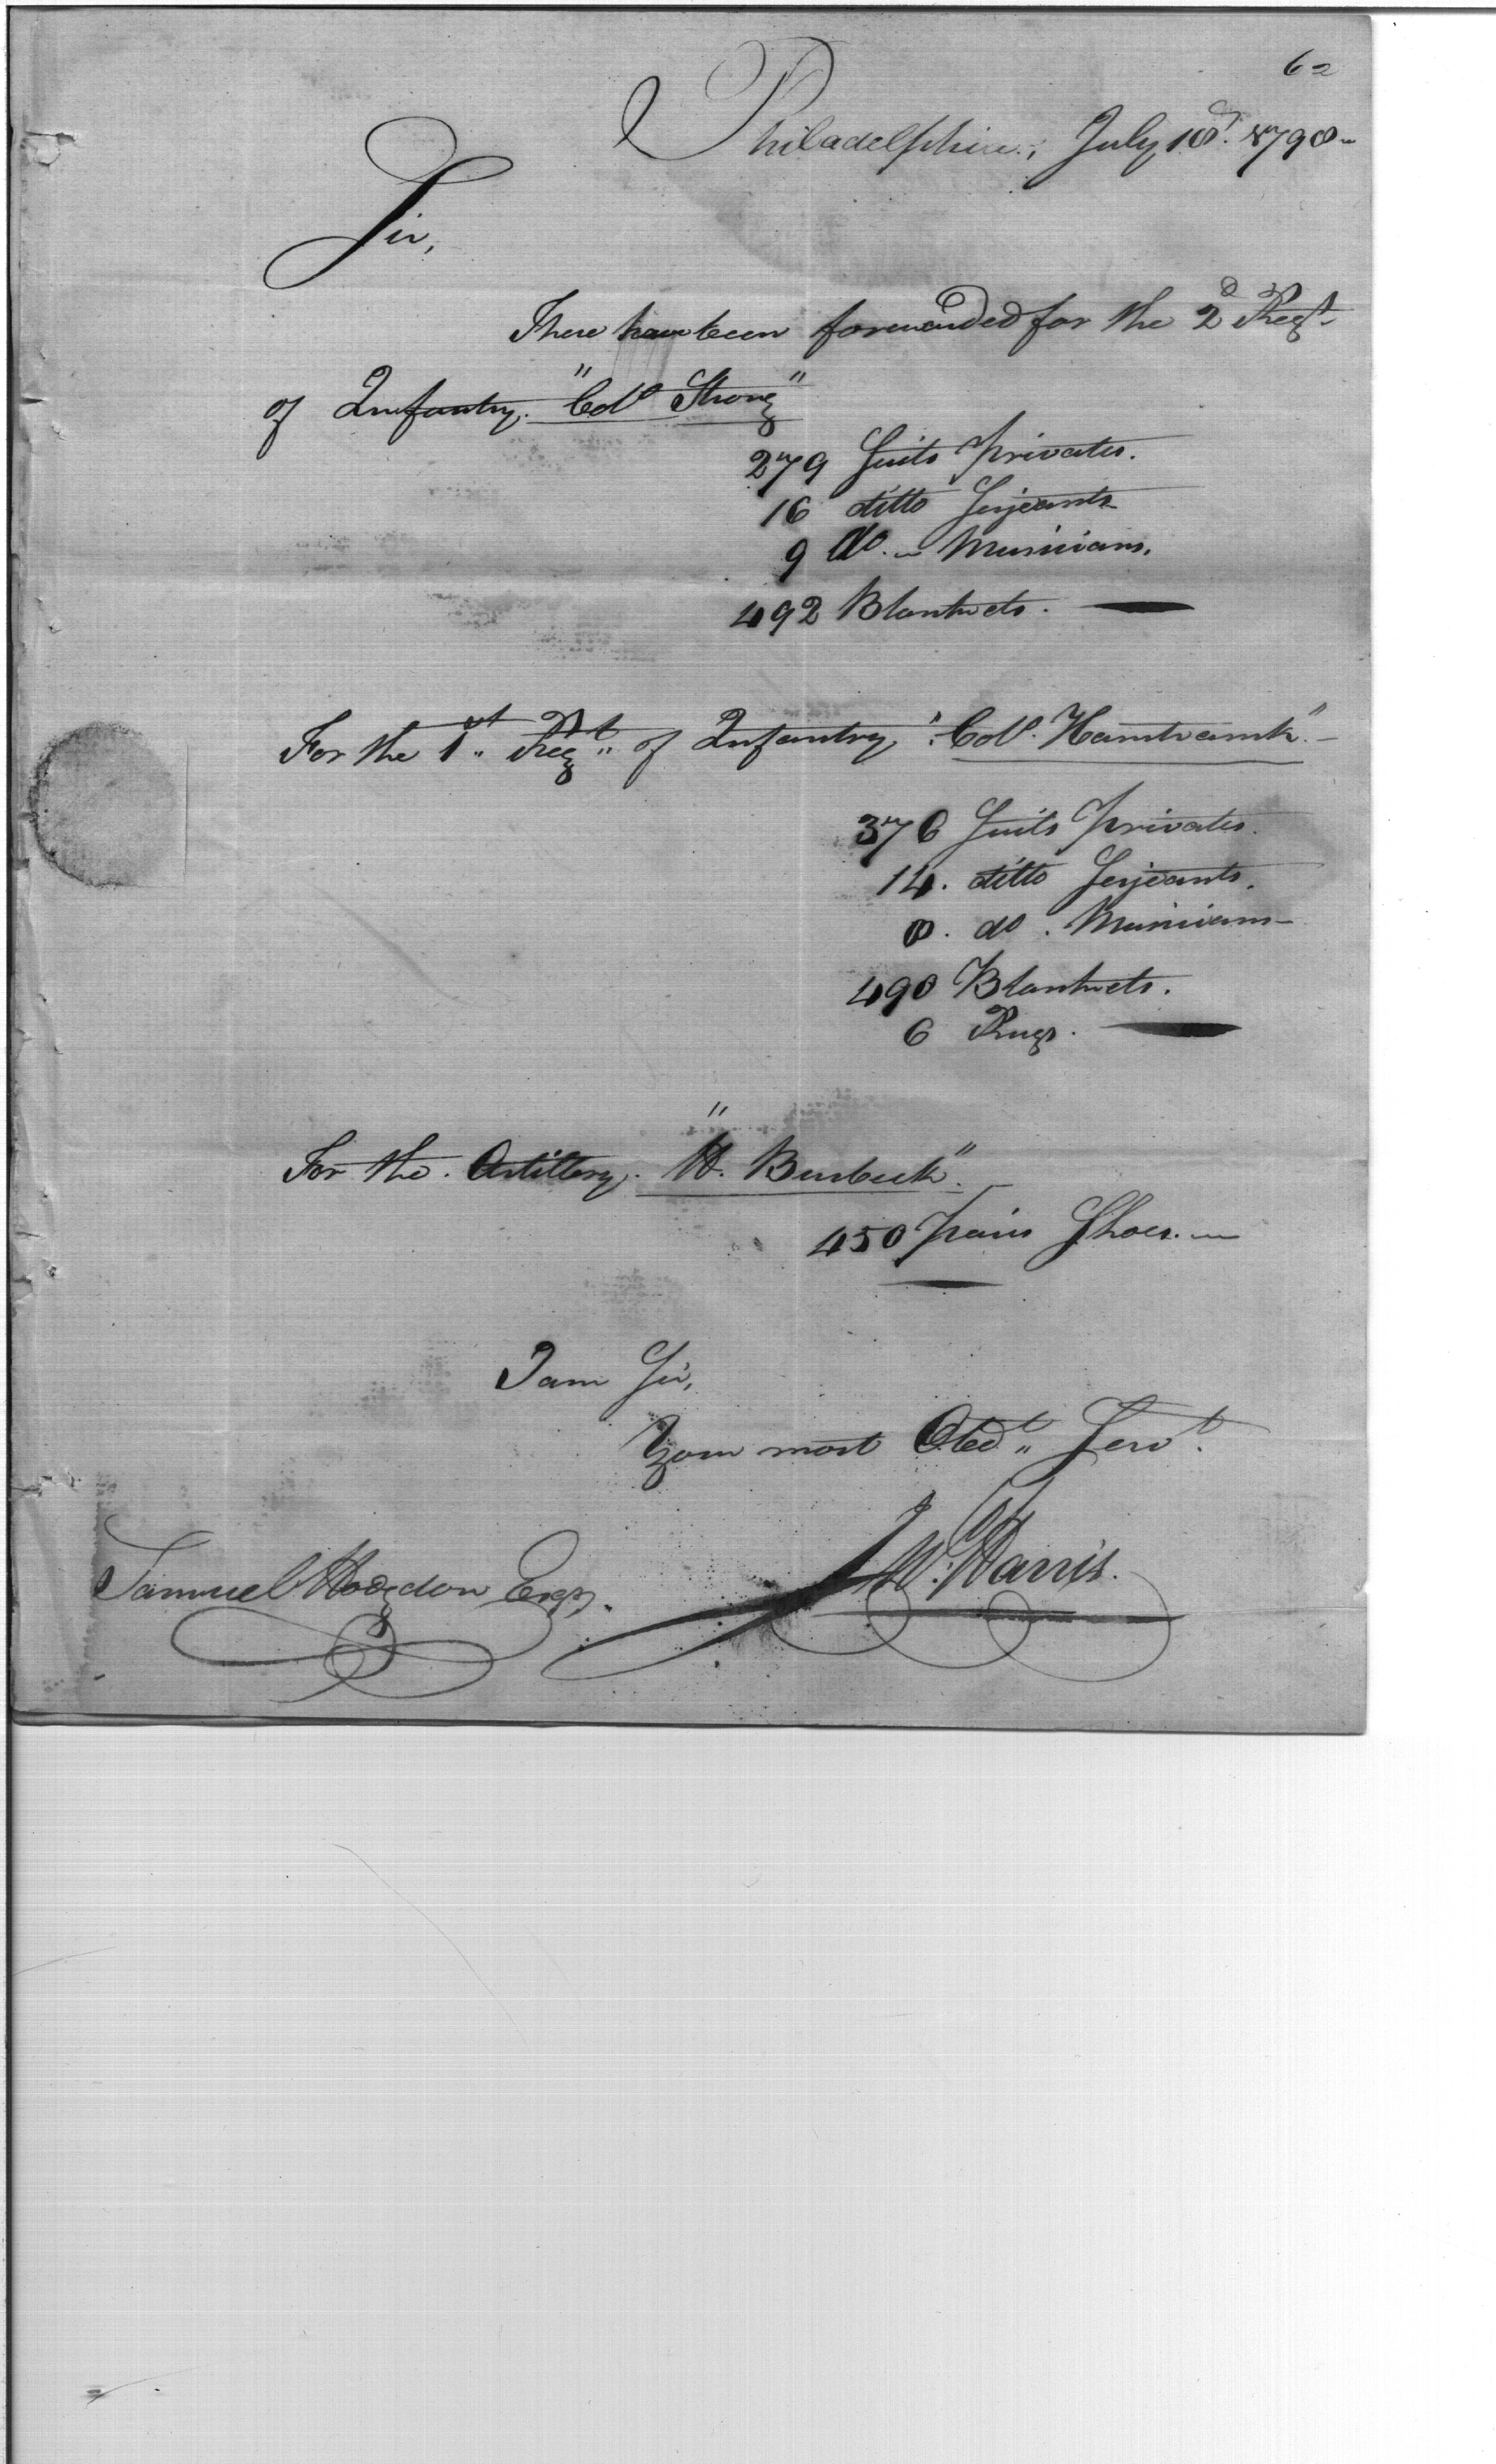 62
Philadelphia, July 18th. 1798
Sir,
There have been forwarded for the 2d Regt
of Infantry. "Coll Strong"
279 Suits privates.
16 ditto Serjeants
9 do. Musicians.
492 Blankets.
For the 1st Regt of Infantry, "Coll. Hamtramk".
376 Suits privates.
14. ditto Serjeants.
8. do. Musicians
498 Blankets.
6 Rugs.
For the Artillery. "H. Burbeck".
450 pairs Shoes.
I am Sir,
Your most Obedt Servt.
Jn W: Harris.
Samuel Hodgdon Esqr.